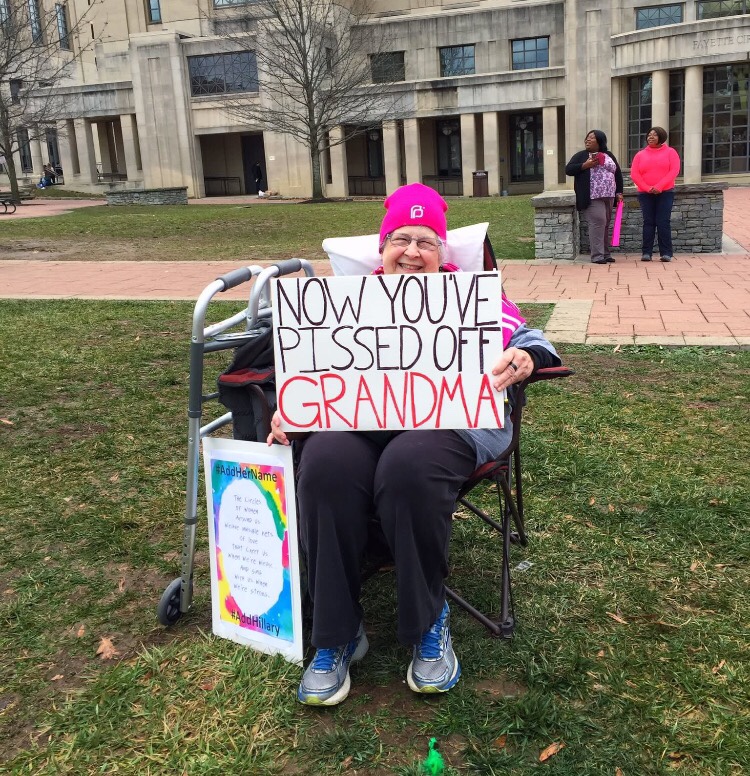 FAYETTE CI
NOW YOU'VE
PISSED OFF
GRANDMA
#AddHerName
The circles
of women
around us
weave invisible nets
of love
that carry us
when we're weak
and sing
with us when
we're strong.
#AddHillary